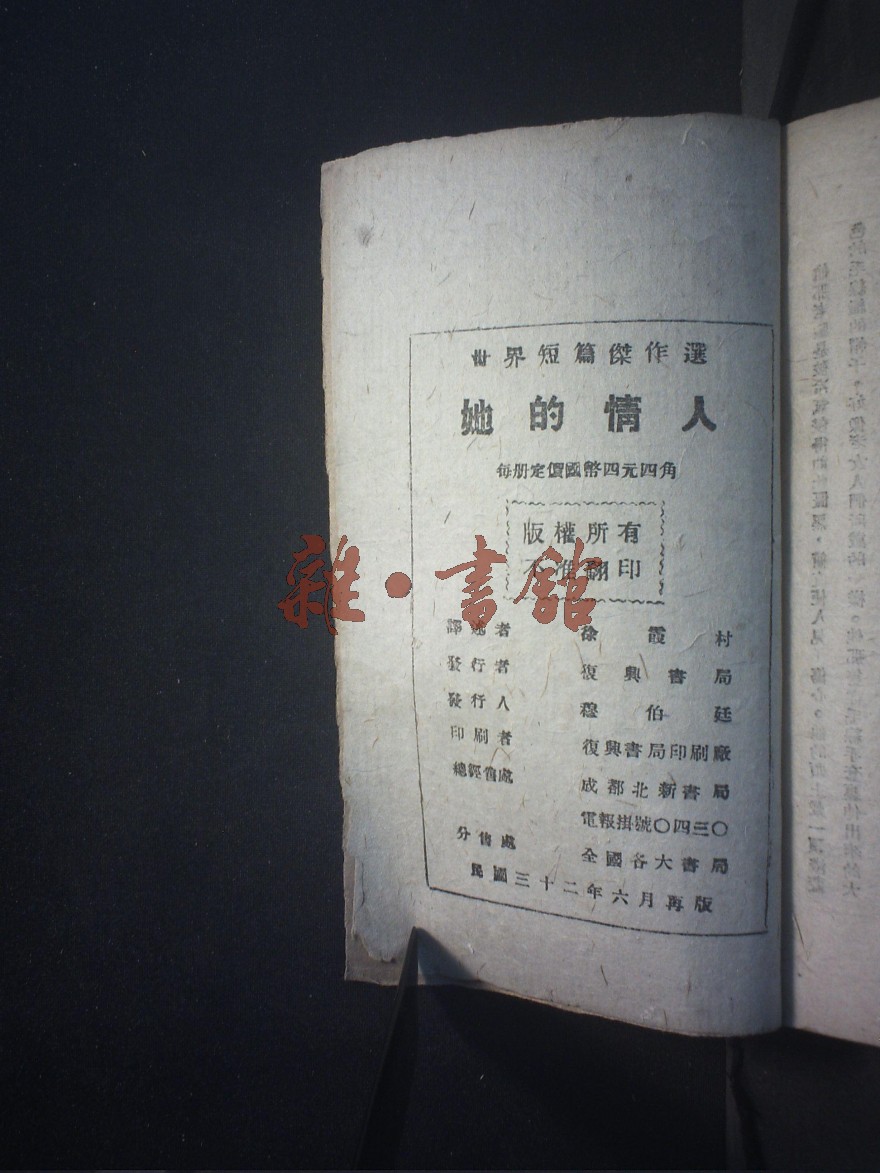 世界短篇傑作選
她的情人
每册定價國幣四元四角
版權所有
不准翻印
雜·書館
譯述者 徐霞村
發行者 復興書局
發行人 穆伯廷
印刷者 復興書局印刷廠
總經售處 成都北新書局
電報掛號〇四三〇
分售處 全國各大書局
民國三十二年六月再版